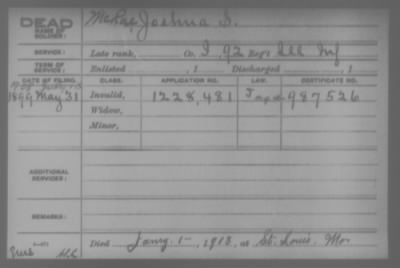 DEAD
NAME OF SOLDIER: McRae, Joshua S.
SERVICE: Late rank, Co. I, 92 Reg't Ill Inf
TERM OF SERVICE: Enlisted , 1 Discharged , 1
DATE OF FILING. CLASS. APPLICATION NO. LAW. CERTIFICATE NO.
1899 May 31 Invalid, 1228,481 987526
Widow,
Minor,
ADDITIONAL SERVICES:
REMARKS:
Died Janry. 1-, 1913, at St. Louis, Mo.